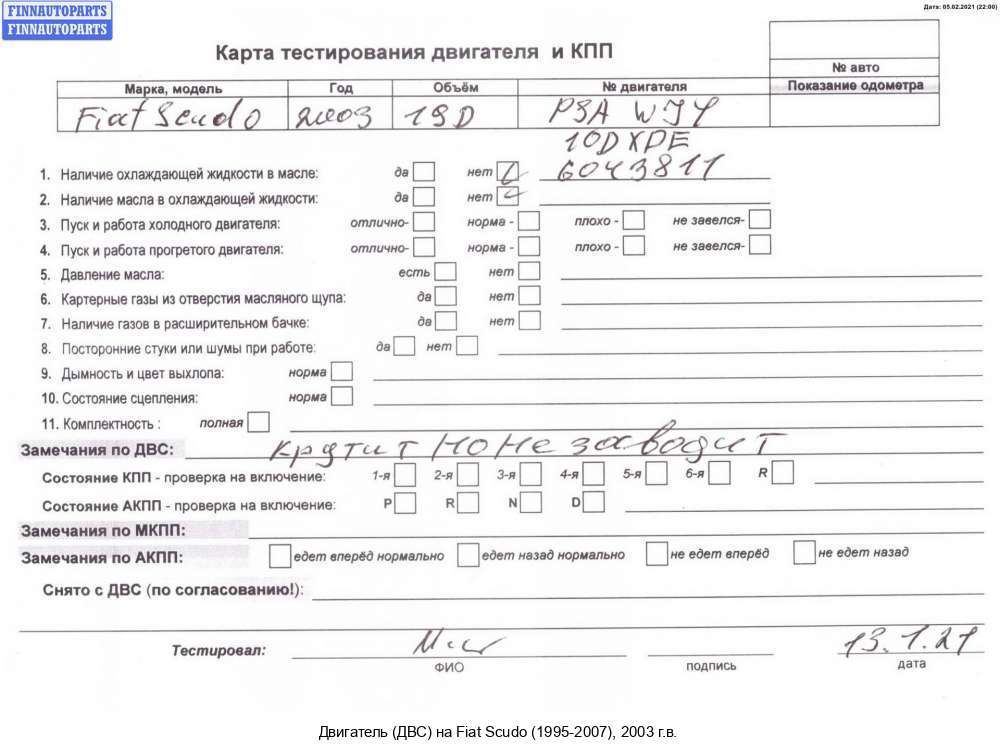 FINNAUTOPARTS
FINNAUTOPARTS
Дата: 05.02.2021 (22:00)
Карта тестирования двигателя и КПП
№ авто
Марка, модель Год Объём № двигателя Показание одометра
Fiat Scudo 2003 19D PSA WJY
10DXPE
6043811
1. Наличие охлаждающей жидкости в масле: да нет
2. Наличие масла в охлаждающей жидкости: да нет
3. Пуск и работа холодного двигателя: отлично- норма - плохо - не завелся-
4. Пуск и работа прогретого двигателя: отлично- норма - плохо - не завелся-
5. Давление масла: есть нет
6. Картерные газы из отверстия масляного щупа: да нет
7. Наличие газов в расширительном бачке: да нет
8. Посторонние стуки или шумы при работе: да нет
9. Дымность и цвет выхлопа: норма
10. Состояние сцепления: норма
11. Комплектность : полная
Замечания по ДВС: крутит но не заводит
Состояние КПП - проверка на включение: 1-я 2-я 3-я 4-я 5-я 6-я R
Состояние АКПП - проверка на включение: P R N D
Замечания по МКПП:
Замечания по АКПП: едет вперёд нормально едет назад нормально не едет вперёд не едет назад
Снято с ДВС (по согласованию!):
Тестировал: 13.1.21
ФИО подпись дата
Двигатель (ДВС) на Fiat Scudo (1995-2007), 2003 г.в.